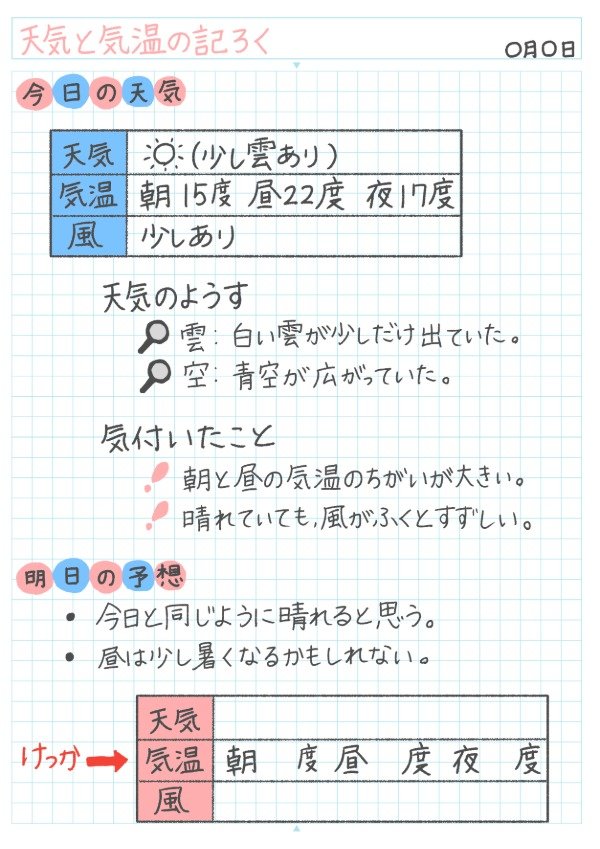 天気と気温の記ろく
〇月〇日
今日の天気
天気 (少し雲あり)
気温 朝15度 昼22度 夜17度
風 少しあり
天気のようす
雲：白い雲が少しだけ出ていた。
空：青空が広がっていた。
気付いたこと
朝と昼の気温のちがいが大きい。
晴れていても，風がふくとすずしい。
明日の予想
・今日と同じように晴れると思う。
・昼は少し暑くなるかもしれない。
天気
けっか→ 気温 朝 度 昼 度 夜 度
風